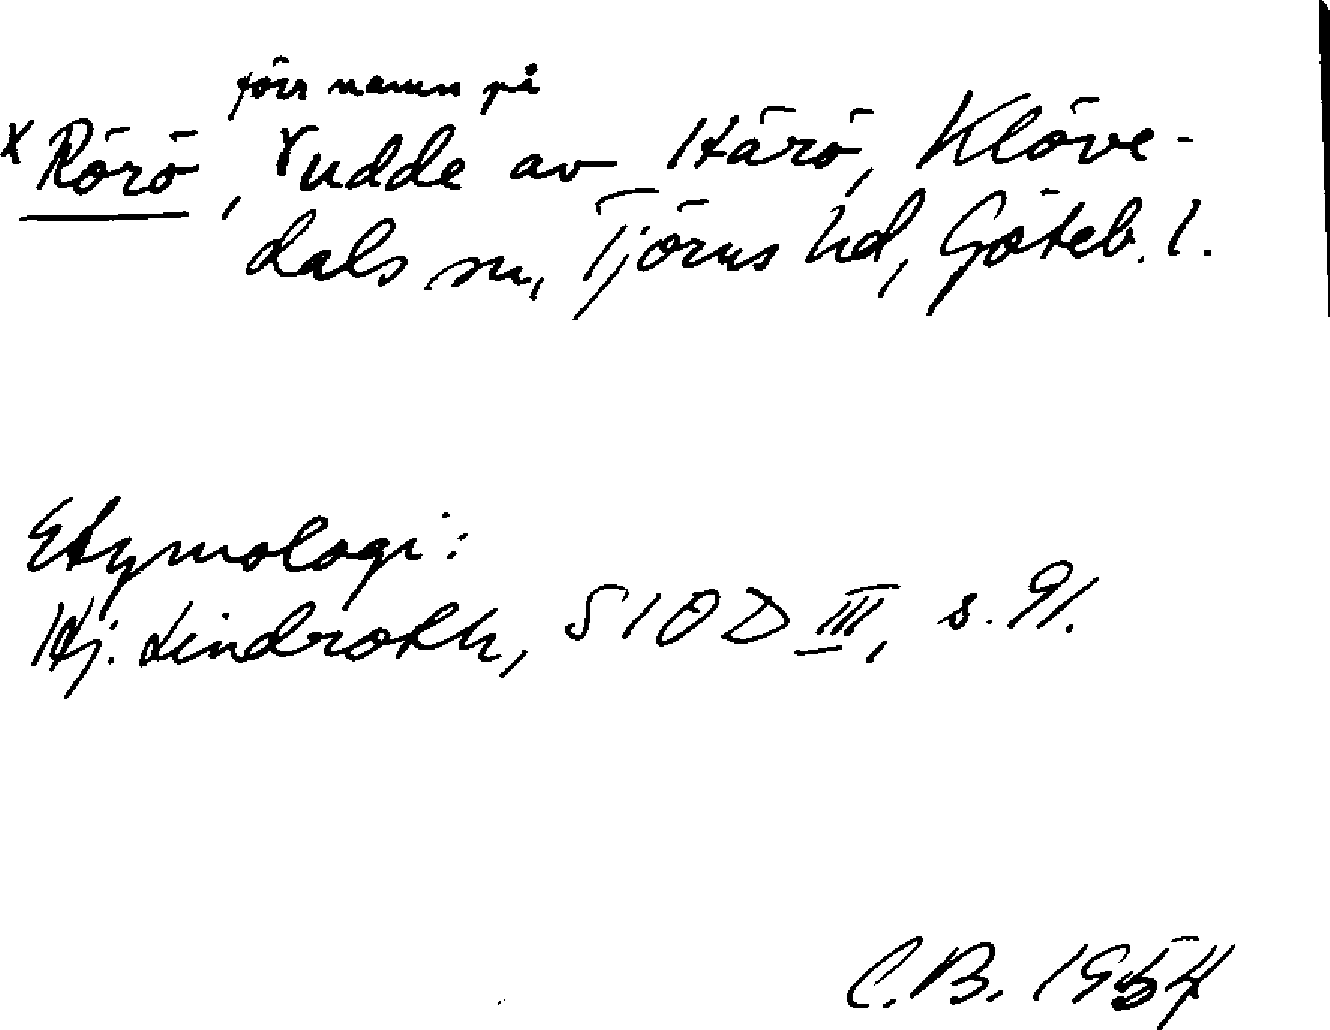 förr namn på
x Rörö, udde av Härö, Klöve-
dals sn, Tjörns hd, Göteb. l.
Etymologi:
Hj. Lindroth, SIOD III, s. 91.
C.B. 1954